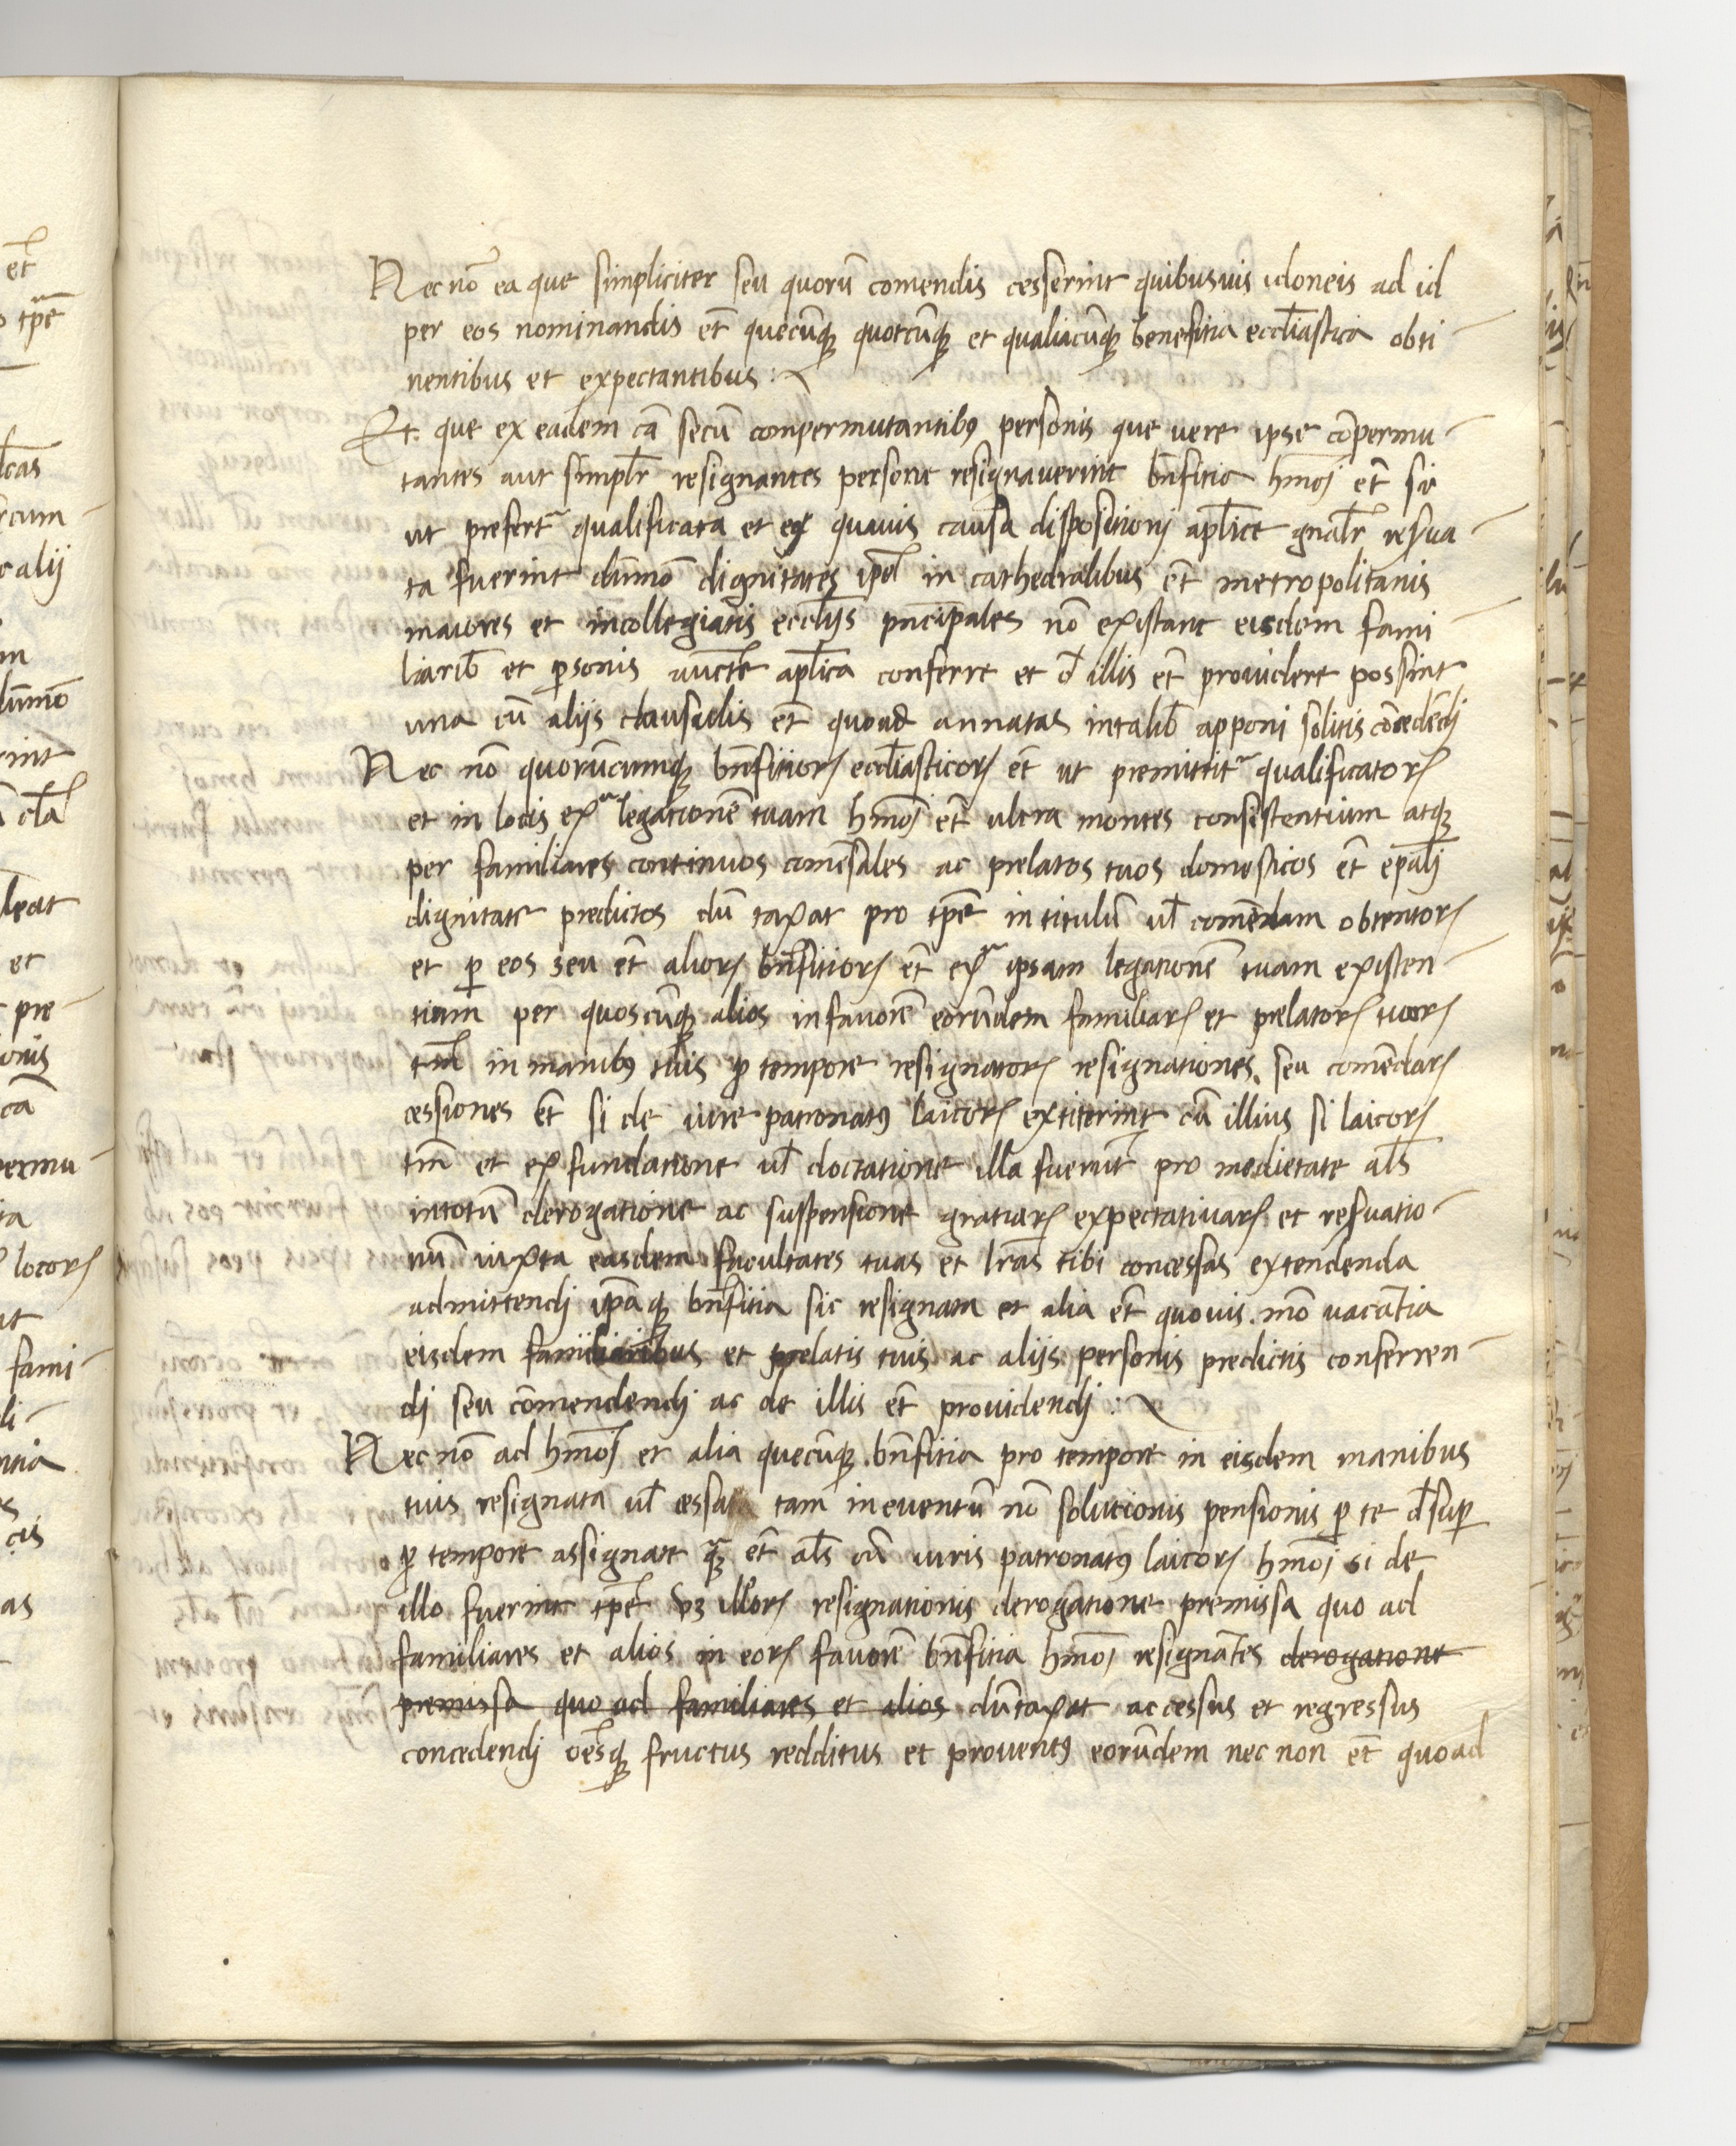 Nec nō ea que simpliciter seu quorū comendis cesserint quibusuis idoneis ad id
per eos nominandis et̄ quecūq₃ quotcūq₃ et qualiacūq₃ benefitia eccl̄iastica obti-
nentibus et expectantibus :~
Et que ex eadem cā secū conpermutantibꝰ personis que vere ipse cōpermu-
tantes aut simpl̄r resignantes persone resignauerint bn̄fitia hm̄oj et̄ sic
ut prefertʳ qualificata et ex quauis causa dispositionj apl̄ice gn̄al̄r resꝭua-
ta fuerint dūmō dignitates ip̄e in cathedralibus et̄ metropolitanis
maiores et incollegiatis eccl̄ijs pn̄cipales nō existant eisdem fami-
liarib̄ et ꝑsonis auct̄e apl̄ica conferre et d̄ illis et̄ prouidere possint
una cū alijs clausulis et̄ quoad annatas intalib̄ apponi solitis cōcedēdj
Nec nō quorūcumq₃ bn̄fitioꝝ eccl̄iasticoꝝ et̄ ut premittitʳ qualificatoꝝ
et in locis exᵃ legationē tuam hm̄oj et̄ ultra montes consistentium atq₃
per familiares continuos comēsales ac prelatos tuos domesticos et̄ ep̄alj
dignitate predictos dū taxat pro tp̄e in titulū ul̄ comēdam obtentoꝝ
et ꝑ eos seu et̄ alioꝝ bn̄fitioꝝ et̄ exᵃ ipsam legationē tuam existen-
tium per quoscūq₃ alios infauorē eorūdem familiaꝝ et prelatoꝝ tuoꝝ
tm̄ in manibꝰ tuis ꝓ tempore resignatoꝝ resignationes, seu comēdaꝝ
cessiones et̄ si de iure patronatꝰ laicoꝝ extiterint cū illius si laicoꝝ
tm̄ et ex fundatione ul̄ doctatione illa fuerint pro medietate al̄s
intotū derogatione ac suspensione gratiaꝝ expectatiuaꝝ et resꝭuatio-
nū iuxta easdem facultates tuas et lr̄as tibi concessas extendenda
admittendj ip̄aq₃ bn̄fitia sic resignata et alia et̄ quouis mō vacātia
eisdem familiaribus et prelatis tuis ac alijs personis predictis conferren-
dj seu cōmendendj ac de illis et̄ prouidendj :~
Nec nō ad hm̄oj et alia quecūq₃ bn̄fitia pro tempore in eisdem manibus
tuis resignata ul̄ cessa tam in euentū nō solutionis pensionis ꝑ te d̄suꝑ
ꝓ tempore assignate q̄ᵃ et̄ al̄s cū iuris patronatꝰ laicoꝝ hm̄oj si de
illo fuerint tp̄e v₃ illoꝝ resignationis derogatione premissa quo ad
familiares et alios in eoꝝ fauorē bn̄fitia hm̄oj resignātes derogatione
premissa quo ad familiares et alios dūtaxat accessus et regressus
concedendj oēsq₃ fructus redditus et prouentꝰ eorūdem nec non et̄ quoad